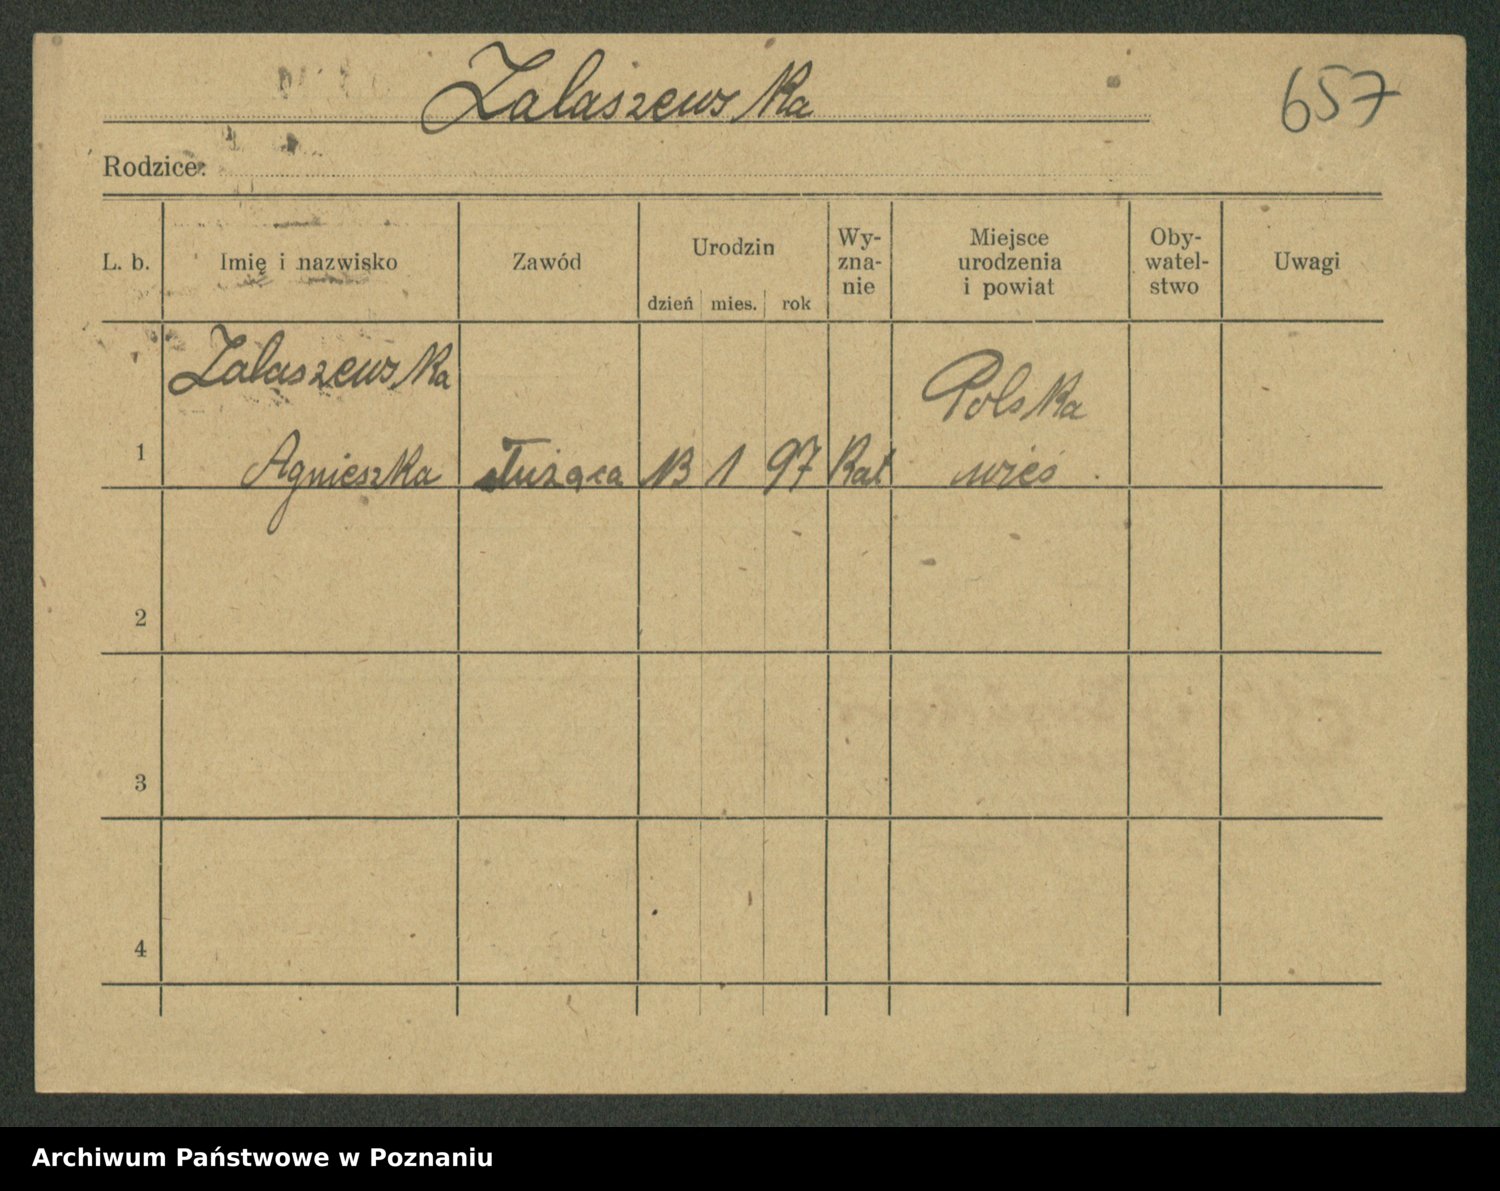 Zalaszewska
657
Rodzice:
L. b.
Imię i nazwisko
Zawód
Urodzin
dzień
mies.
rok
Wy-
zna-
nie
Miejsce
urodzenia
i powiat
Oby-
watel-
stwo
Uwagi
Zalaszewska
Polska
1
Agnieszka
służąca
13
1
97
Kat
wieś
2
3
4
Archiwum Państwowe w Poznaniu